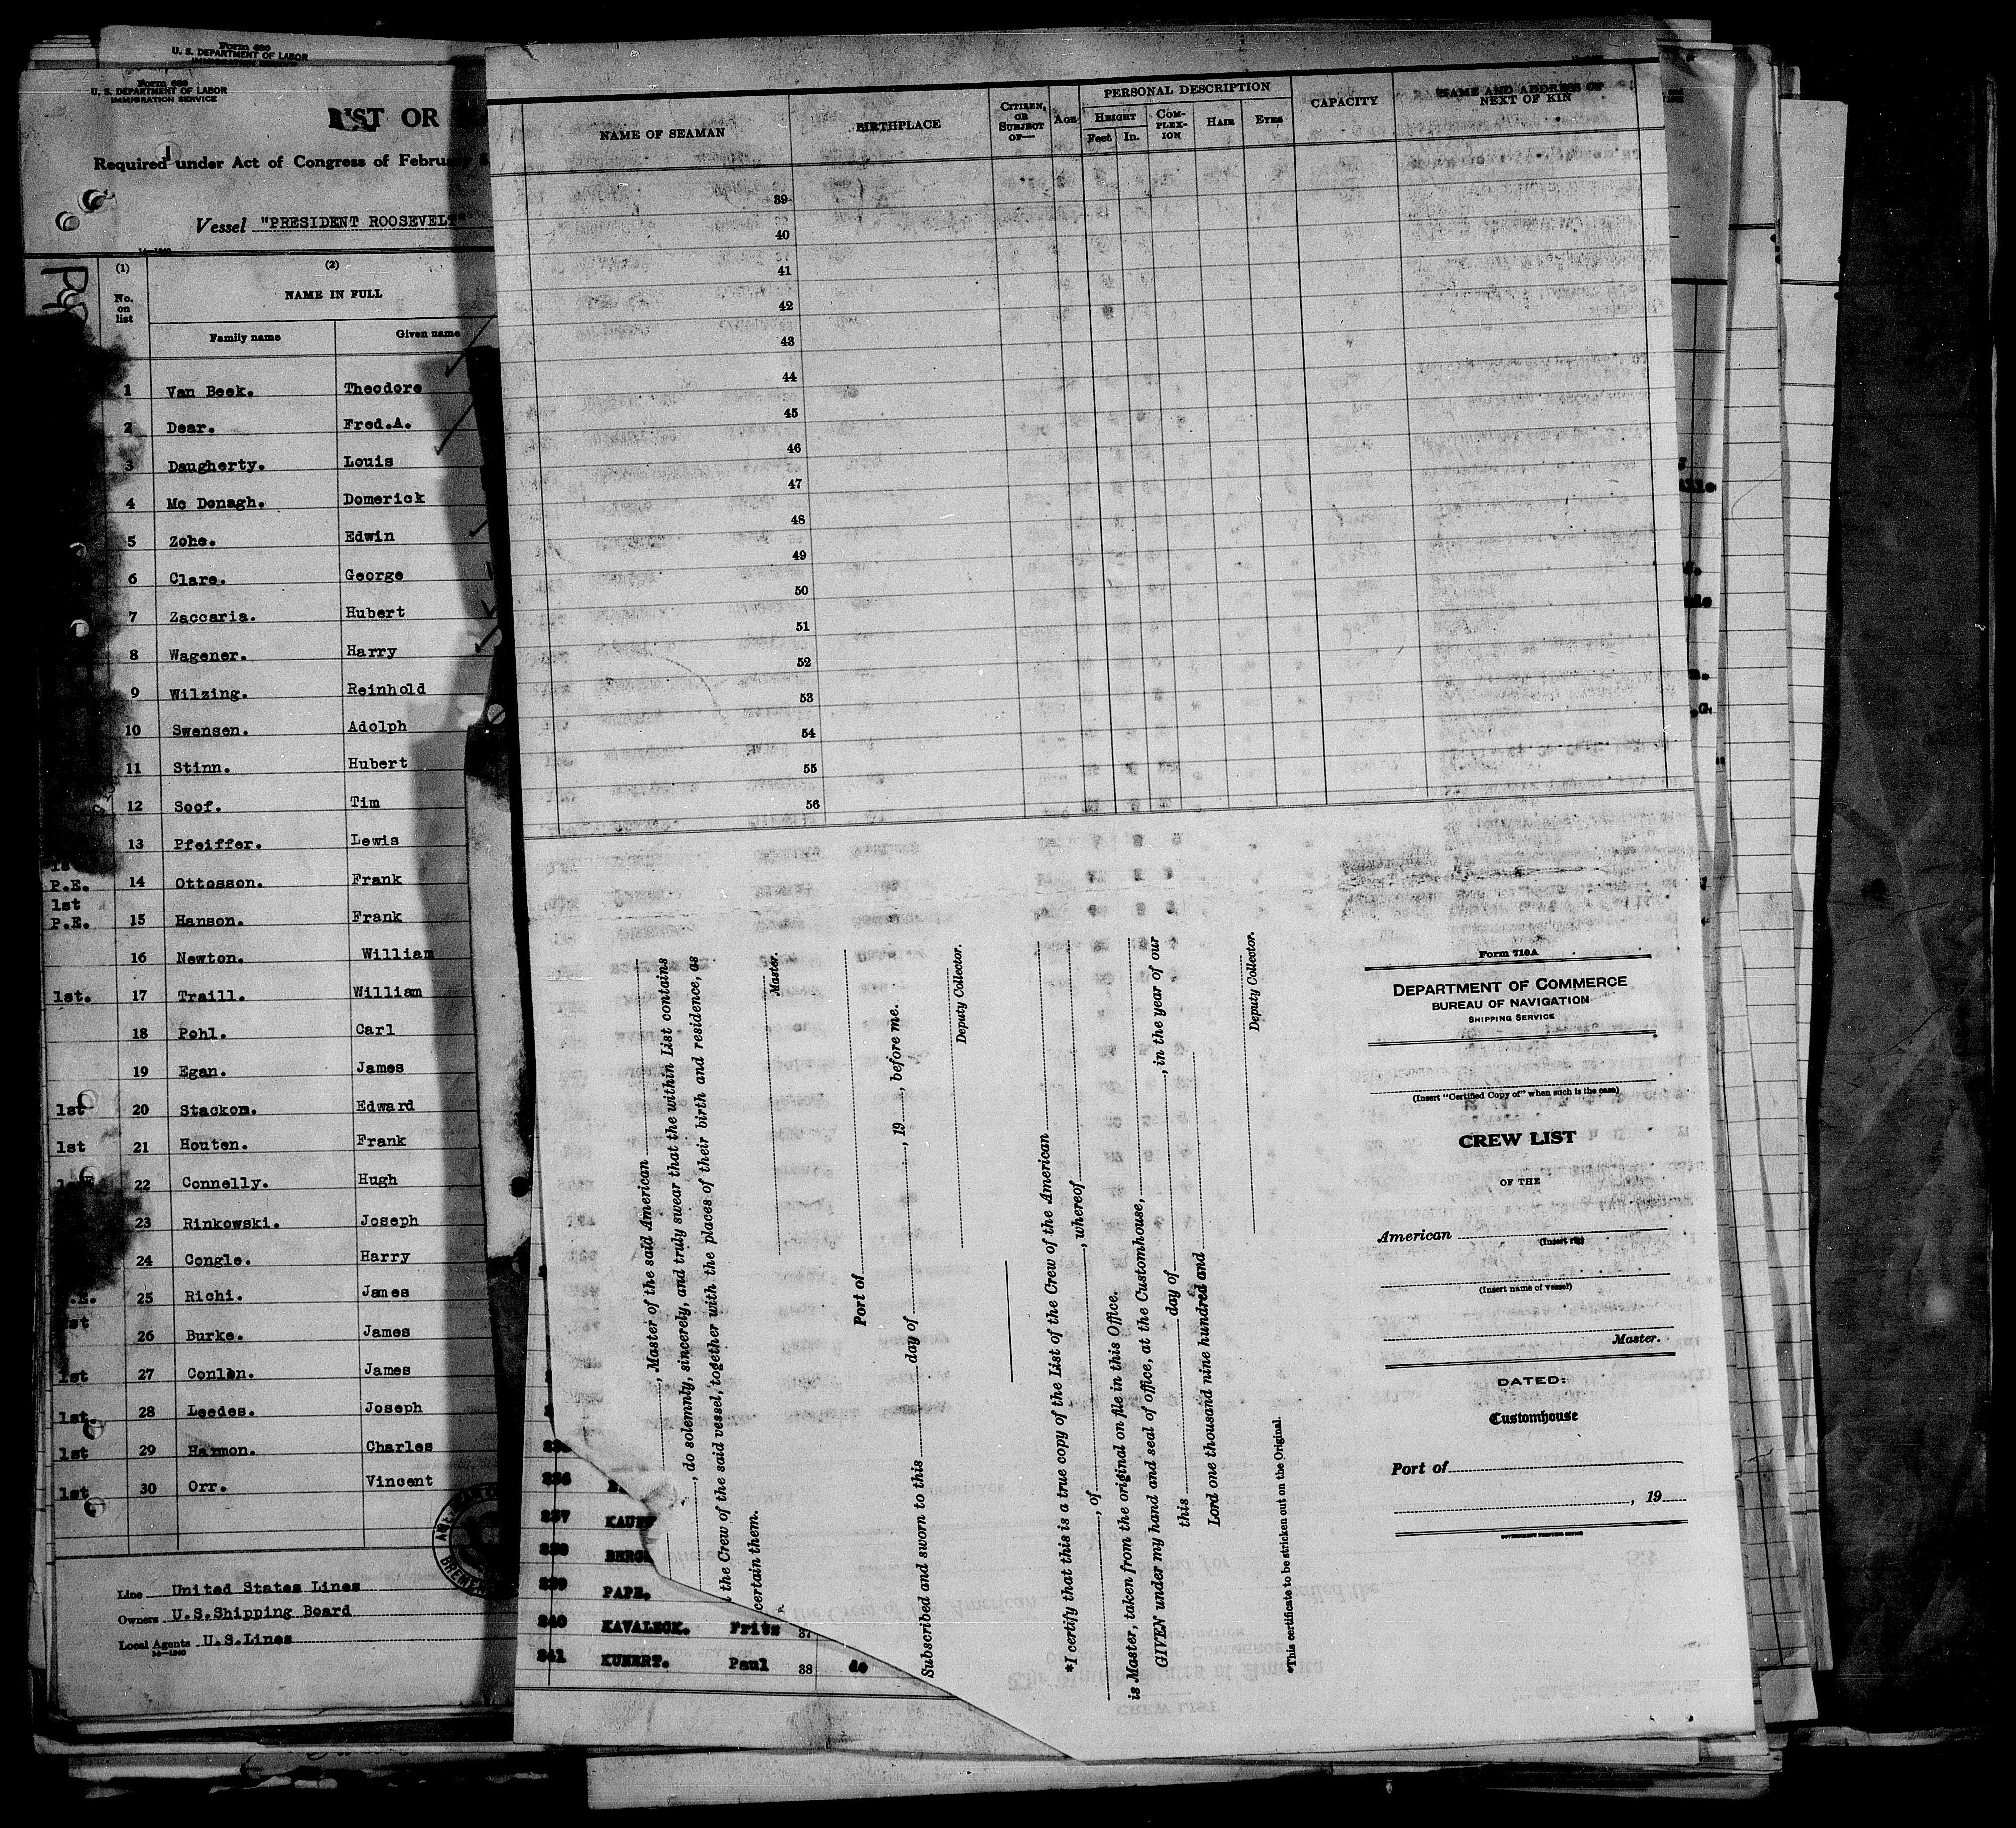 Form 680
U. S. DEPARTMENT OF LABOR
Form 680
U. S. DEPARTMENT OF LABOR
IMMIGRATION SERVICE
LIST OR
Required under Act of Congress of February
Vessel "PRESIDENT ROOSEVELT"
(1) (2)
No. on list
NAME IN FULL
Family name Given name
1 Van Beek. Theodore
2 Dear. Fred.A.
3 Daugherty. Louis
4 Mc Donagh. Domerick
5 Zohe. Edwin
6 Clare. George
7 Zaccaria. Hubert
8 Wagener. Harry
9 Wilzing. Reinhold
10 Swensen. Adolph
11 Stinn. Hubert
12 Soof. Tim
13 Pfeiffer. Lewis
P.E. 14 Ottosson. Frank
1st
P.E. 15 Hanson. Frank
16 Newton. William
1st. 17 Traill. William
18 Pohl. Carl
19 Egan. James
1st 20 Stackon. Edward
1st 21 Houten. Frank
22 Connelly. Hugh
23 Rinkowski. Joseph
24 Congle. Harry
25 Richi. James
26 Burke. James
1st 27 Conlon. James
1st. 28 Leedes. Joseph
1st 29 Harmon. Charles
1st 30 Orr. Vincent
Line United States Lines
Owners U.S.Shipping Board
Local Agents U.S.Lines
14—1240
NAME OF SEAMAN
BIRTHPLACE
CITIZEN, OR SUBJECT OF—
AGE
PERSONAL DESCRIPTION
HEIGHT
Feet In.
COM-PLEX-ION
HAIR
EYES
CAPACITY
NAME AND ADDRESS OF NEXT OF KIN
39
40
41
42
43
44
45
46
47
48
49
50
51
52
53
54
55
56
236
237 KAUF
238 BERG
239 PAPE.
240 KAVALECK. Fritz 37
241 KUHERT. Paul 38 do
, Master of the said American
, do solemnly, sincerely, and truly swear that the within List contains
the Crew of the said vessel, together with the places of their birth and residence, as
certain them.
Master.
Port of
Subscribed and sworn to this day of , 19 , before me.
Deputy Collector.
*I certify that this is a true copy of the List of the Crew of the American
, of , whereof
is Master, taken from the original on file in this Office.
GIVEN under my hand and seal of office, at the Customhouse,
this day of , in the year of our
Lord one thousand nine hundred and
Deputy Collector.
*This certificate to be stricken out on the Original.
Form 710A
DEPARTMENT OF COMMERCE
BUREAU OF NAVIGATION
SHIPPING SERVICE
(Insert "Certified Copy of" when such is the case)
CREW LIST
OF THE
American
(Insert rig)
(Insert name of vessel)
Master.
DATED:
Customhouse
Port of
, 19
GOVERNMENT PRINTING OFFICE